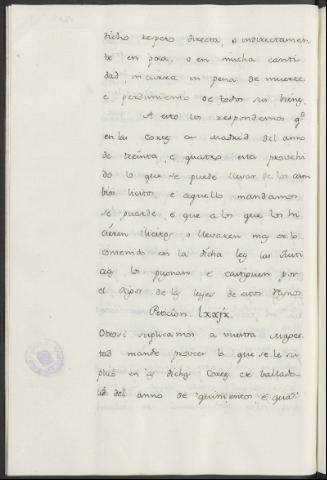 dicho respeto directa, o indirectamen
te en poca, o en mucha canti
dad, incurra en pena de muerte
e perdimiento de todos sus bienes.
A esto vos respondemos qᵉ
en las Cortes en Madrid del anno
de treinta, e quatro esta provehi
do lo que se puede llevar de los cam
bios licitos, e aquello mandamos
se guarde, e que a los que los hi
cieren ilicitos o llevaren mas de lo
contenido en la dicha ley las Justi
cias los pugnan e castiguen por
el rigor de las leyes de estos Reynos
Peticion. lxxjx.
Otrosi suplicamos a vuestra Mages
tad mande proveer lo que se le su
plicó en las dichas Cortes de Vallado
lid del anno de quinientos e qua